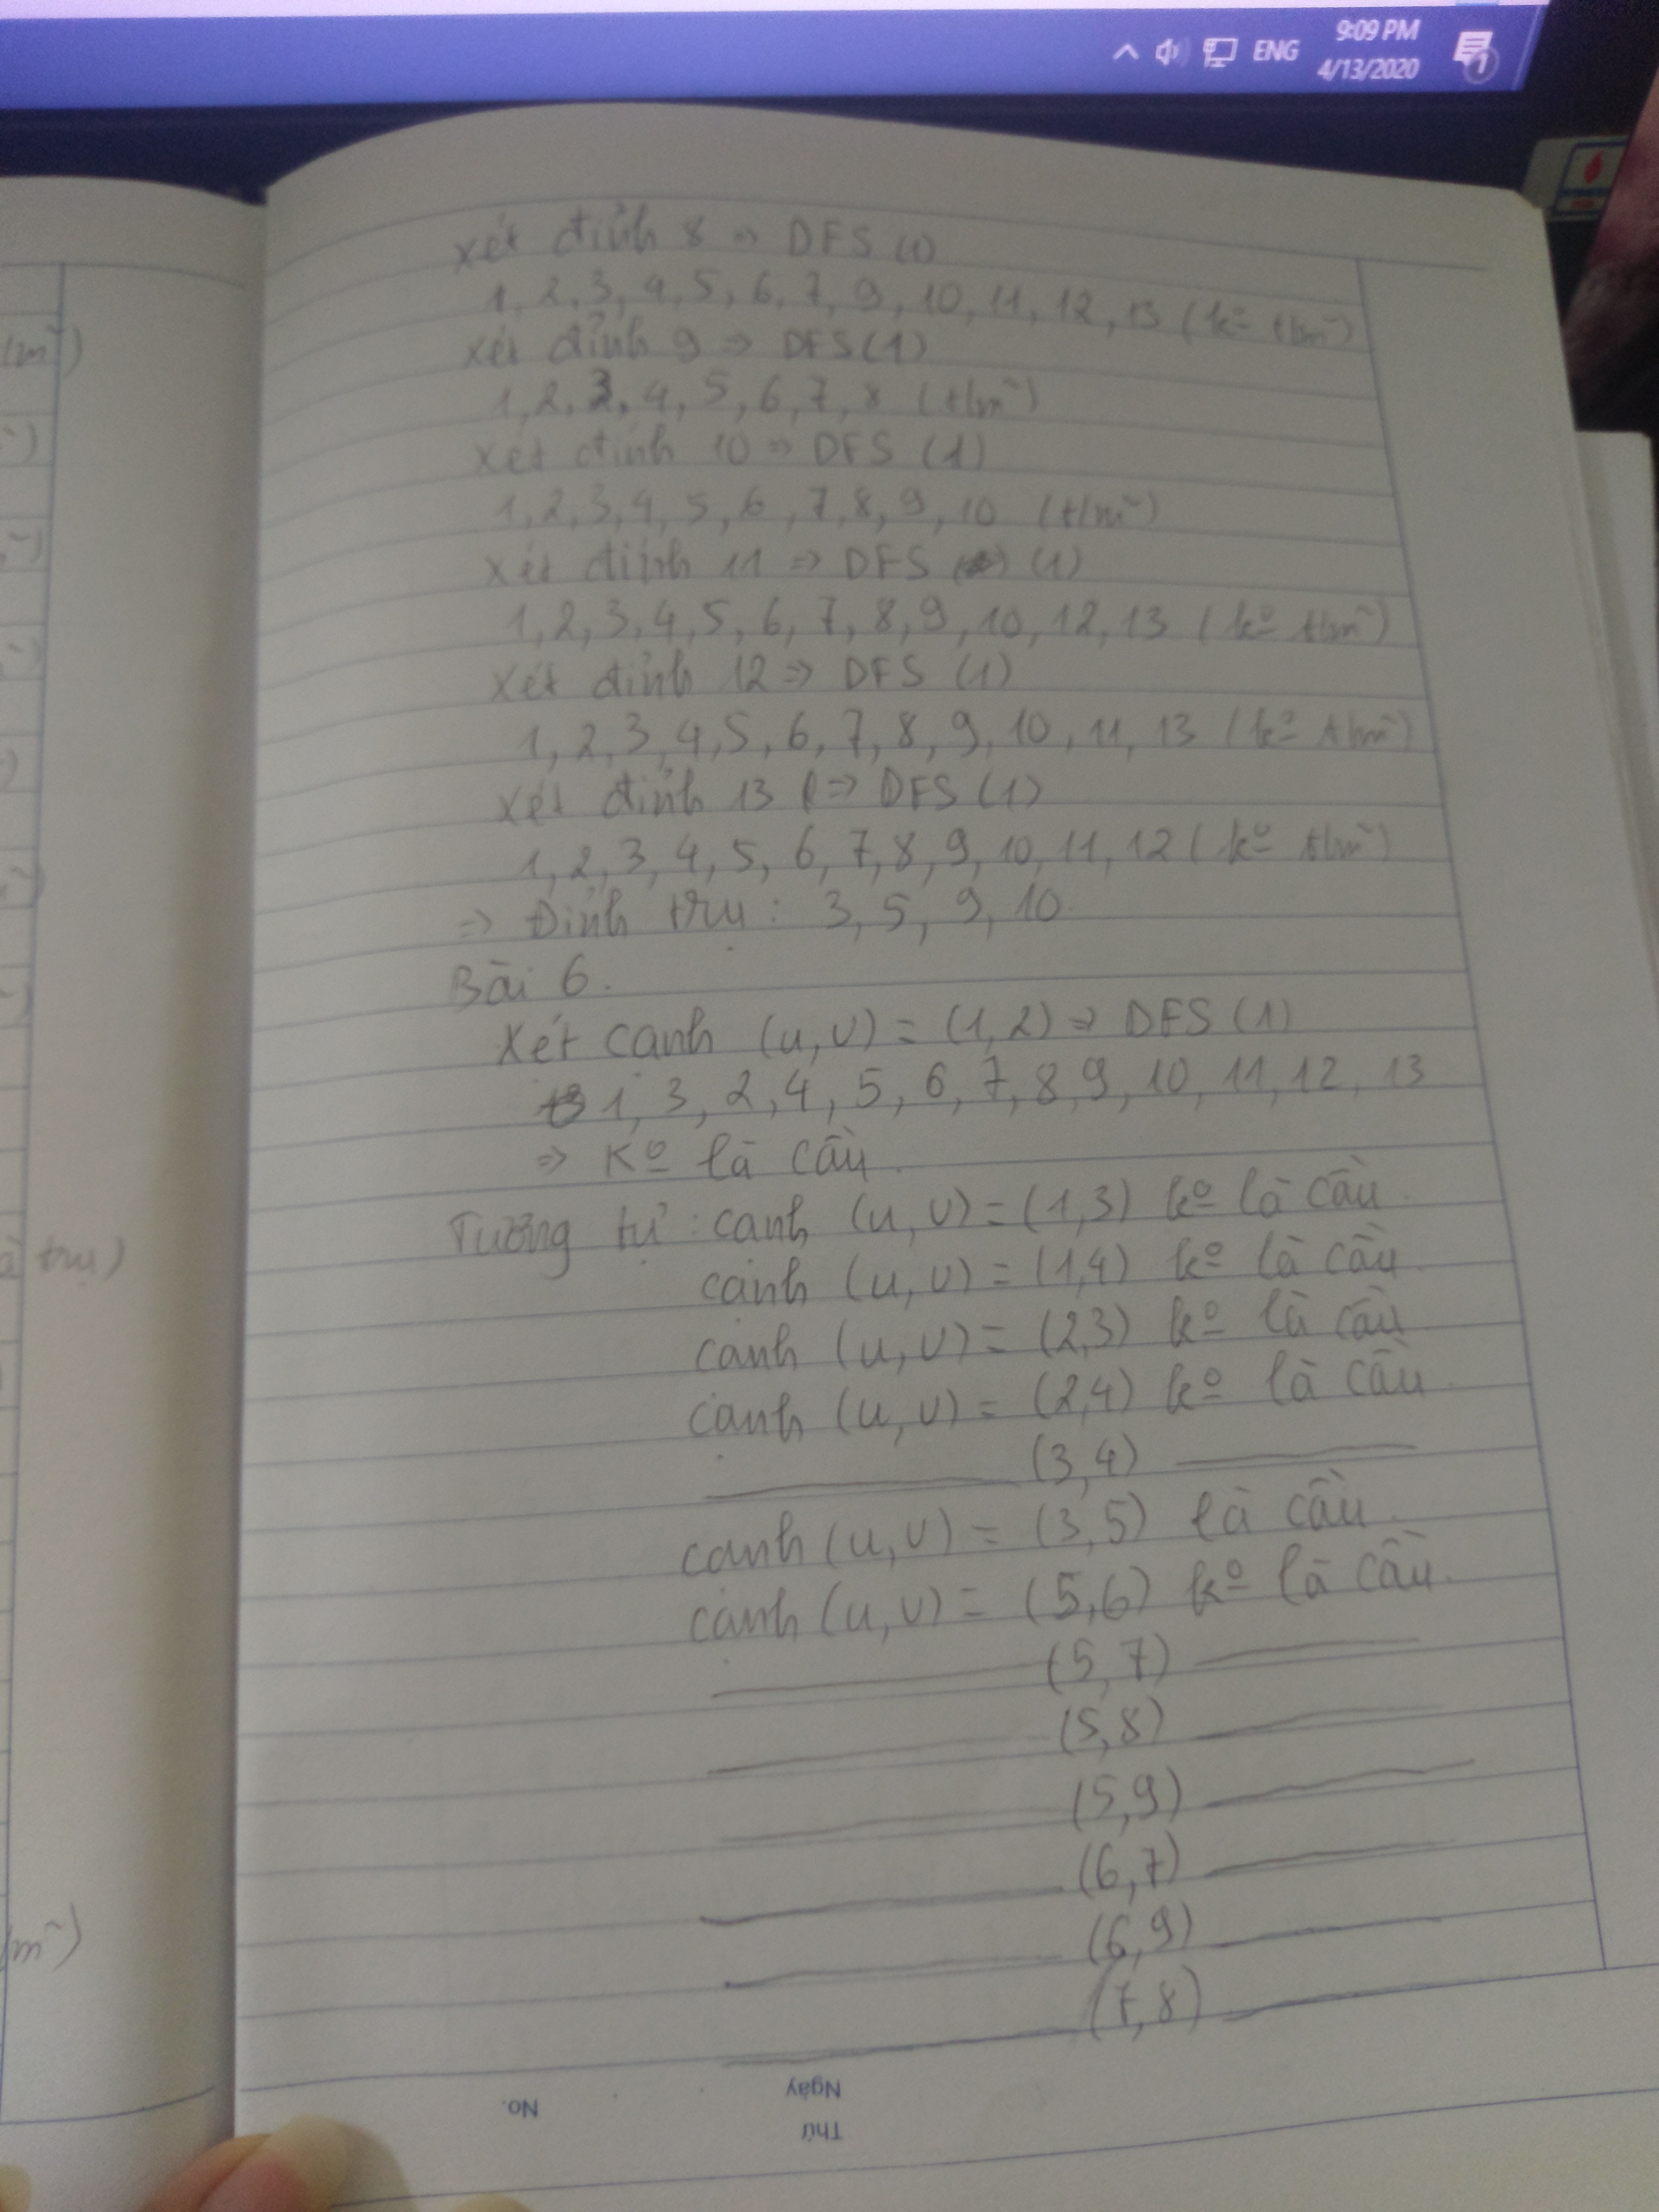 9:09 PM
ENG
4/13/2020
1
Xét đỉnh 8 => DFS (1)
1, 2, 3, 4, 5, 6, 7, 9, 10, 11, 12, 13 (kº t/m~)
Xét đỉnh 9 => DFS (1)
1, 2, 3, 4, 5, 6, 7, 8 (t/m~)
Xét đỉnh 10 => DFS (1)
1, 2, 3, 4, 5, 6, 7, 8, 9, 10 (t/m~)
Xét đỉnh 11 => DFS (1)
1, 2, 3, 4, 5, 6, 7, 8, 9, 10, 12, 13 (kº t/m~)
Xét đỉnh 12 => DFS (1)
1, 2, 3, 4, 5, 6, 7, 8, 9, 10, 11, 13 (kº t/m~)
Xét đỉnh 13 => DFS (1)
1, 2, 3, 4, 5, 6, 7, 8, 9, 10, 11, 12 (kº t/m~)
=> Đỉnh trụ : 3, 5, 9, 10.
Bài 6.
Xét cạnh (u, v) = (1, 2) => DFS (1)
1, 3, 2, 4, 5, 6, 7, 8, 9, 10, 11, 12, 13
=> Kº là cầu.
Tương tự : cạnh (u, v) = (1, 3) kº là cầu.
cạnh (u, v) = (1, 4) kº là cầu
cạnh (u, v) = (2, 3) kº là cầu
cạnh (u, v) = (2, 4) kº là cầu.
(3, 4)
cạnh (u, v) = (3, 5) là cầu.
cạnh (u, v) = (5, 6) kº là cầu.
(5, 7)
(5, 8)
(5, 9)
(6, 7)
(6, 9)
(7, 8)
Thứ
Ngày
No.
/m~)
à trụ)
/m~)